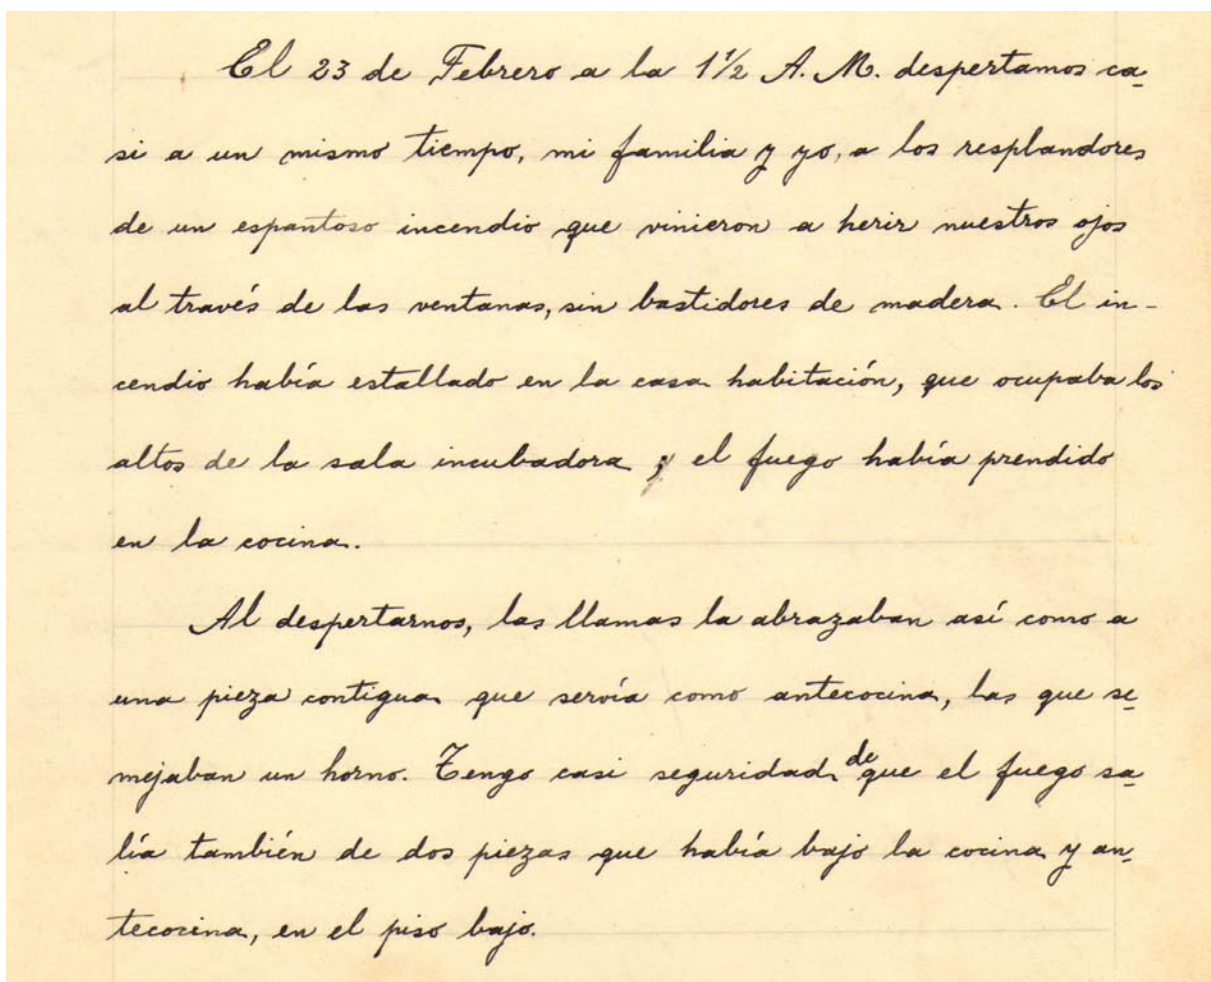 El 23 de Febrero a la 1½ A. M. despertamos ca-
si a un mismo tiempo, mi familia y yo, a los resplandores
de un espantoso incendio que vinieron a herir nuestros ojos
al través de las ventanas, sin bastidores de madera. El in-
cendio había estallado en la casa habitación, que ocupaba los
altos de la sala incubadora; el fuego había prendido
en la cocina.
Al despertarnos, las llamas la abrazaban así como a
una pieza contigua que servía como antecocina, las que se-
mejaban un horno. Tengo casi seguridad de que el fuego sa-
lía también de dos piezas que había bajo la cocina y an-
tecocina, en el piso bajo.